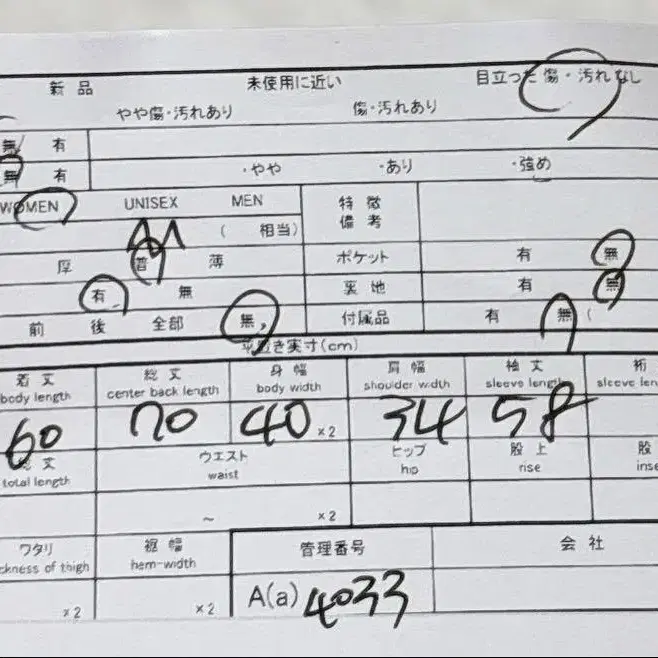 新品 未使用に近い 目立った傷・汚れなし
やや傷・汚れあり 傷・汚れあり
無 有
無 有 ・やや ・あり ・強め
WOMEN UNISEX MEN 特徴
備考
M ( 相当)
厚 普 薄 ポケット 有 無
有 無 裏地 有 無
前 後 全部 無 付属品 有 無 (
平置き実寸(cm)
着丈 総丈 身幅 肩幅 袖丈 裄
body length center back length body width shoulder width sleeve length sleeve len
60 70 40 ×2 34 58
総丈 ウエスト ヒップ 股上 股
total length waist hip rise inse
~ ×2
ワタリ 裾幅 管理番号 会社
ckness of thigh hem-width
×2 ×2 A(a) 4033